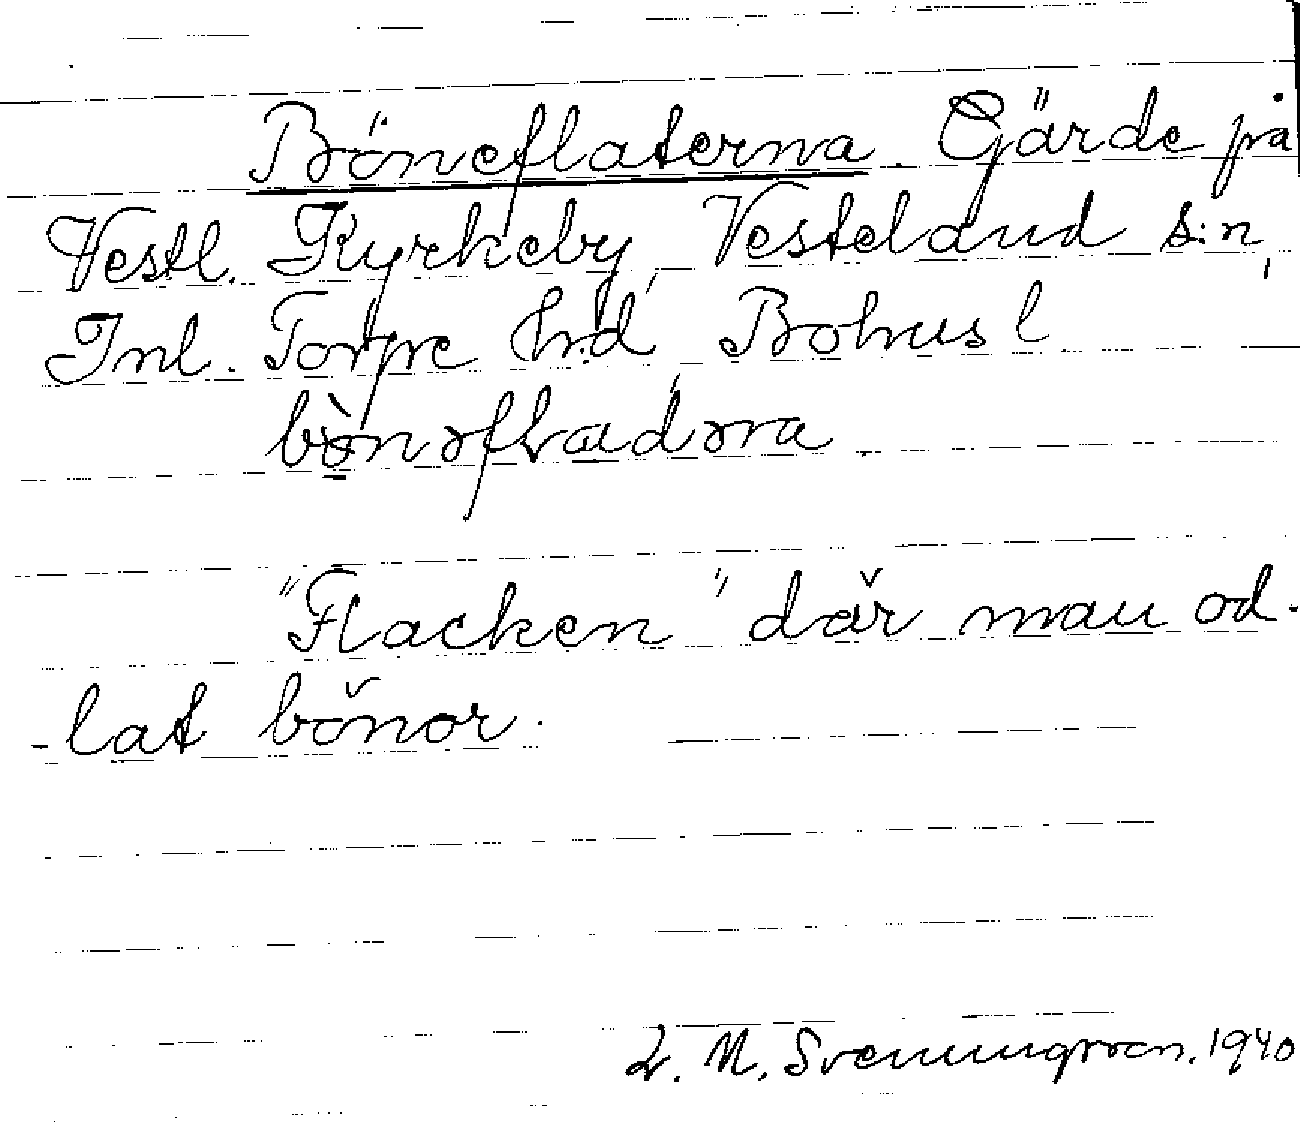 Böneflaterna. Gärde på
Vestl. Kyrkeby, Vesteland s:n,
Inl. Torpe hrd, Bohusl
bònəfladəra
"Flacken" där man od-
-lat bönor.
L. M. Svenungsson. 1940